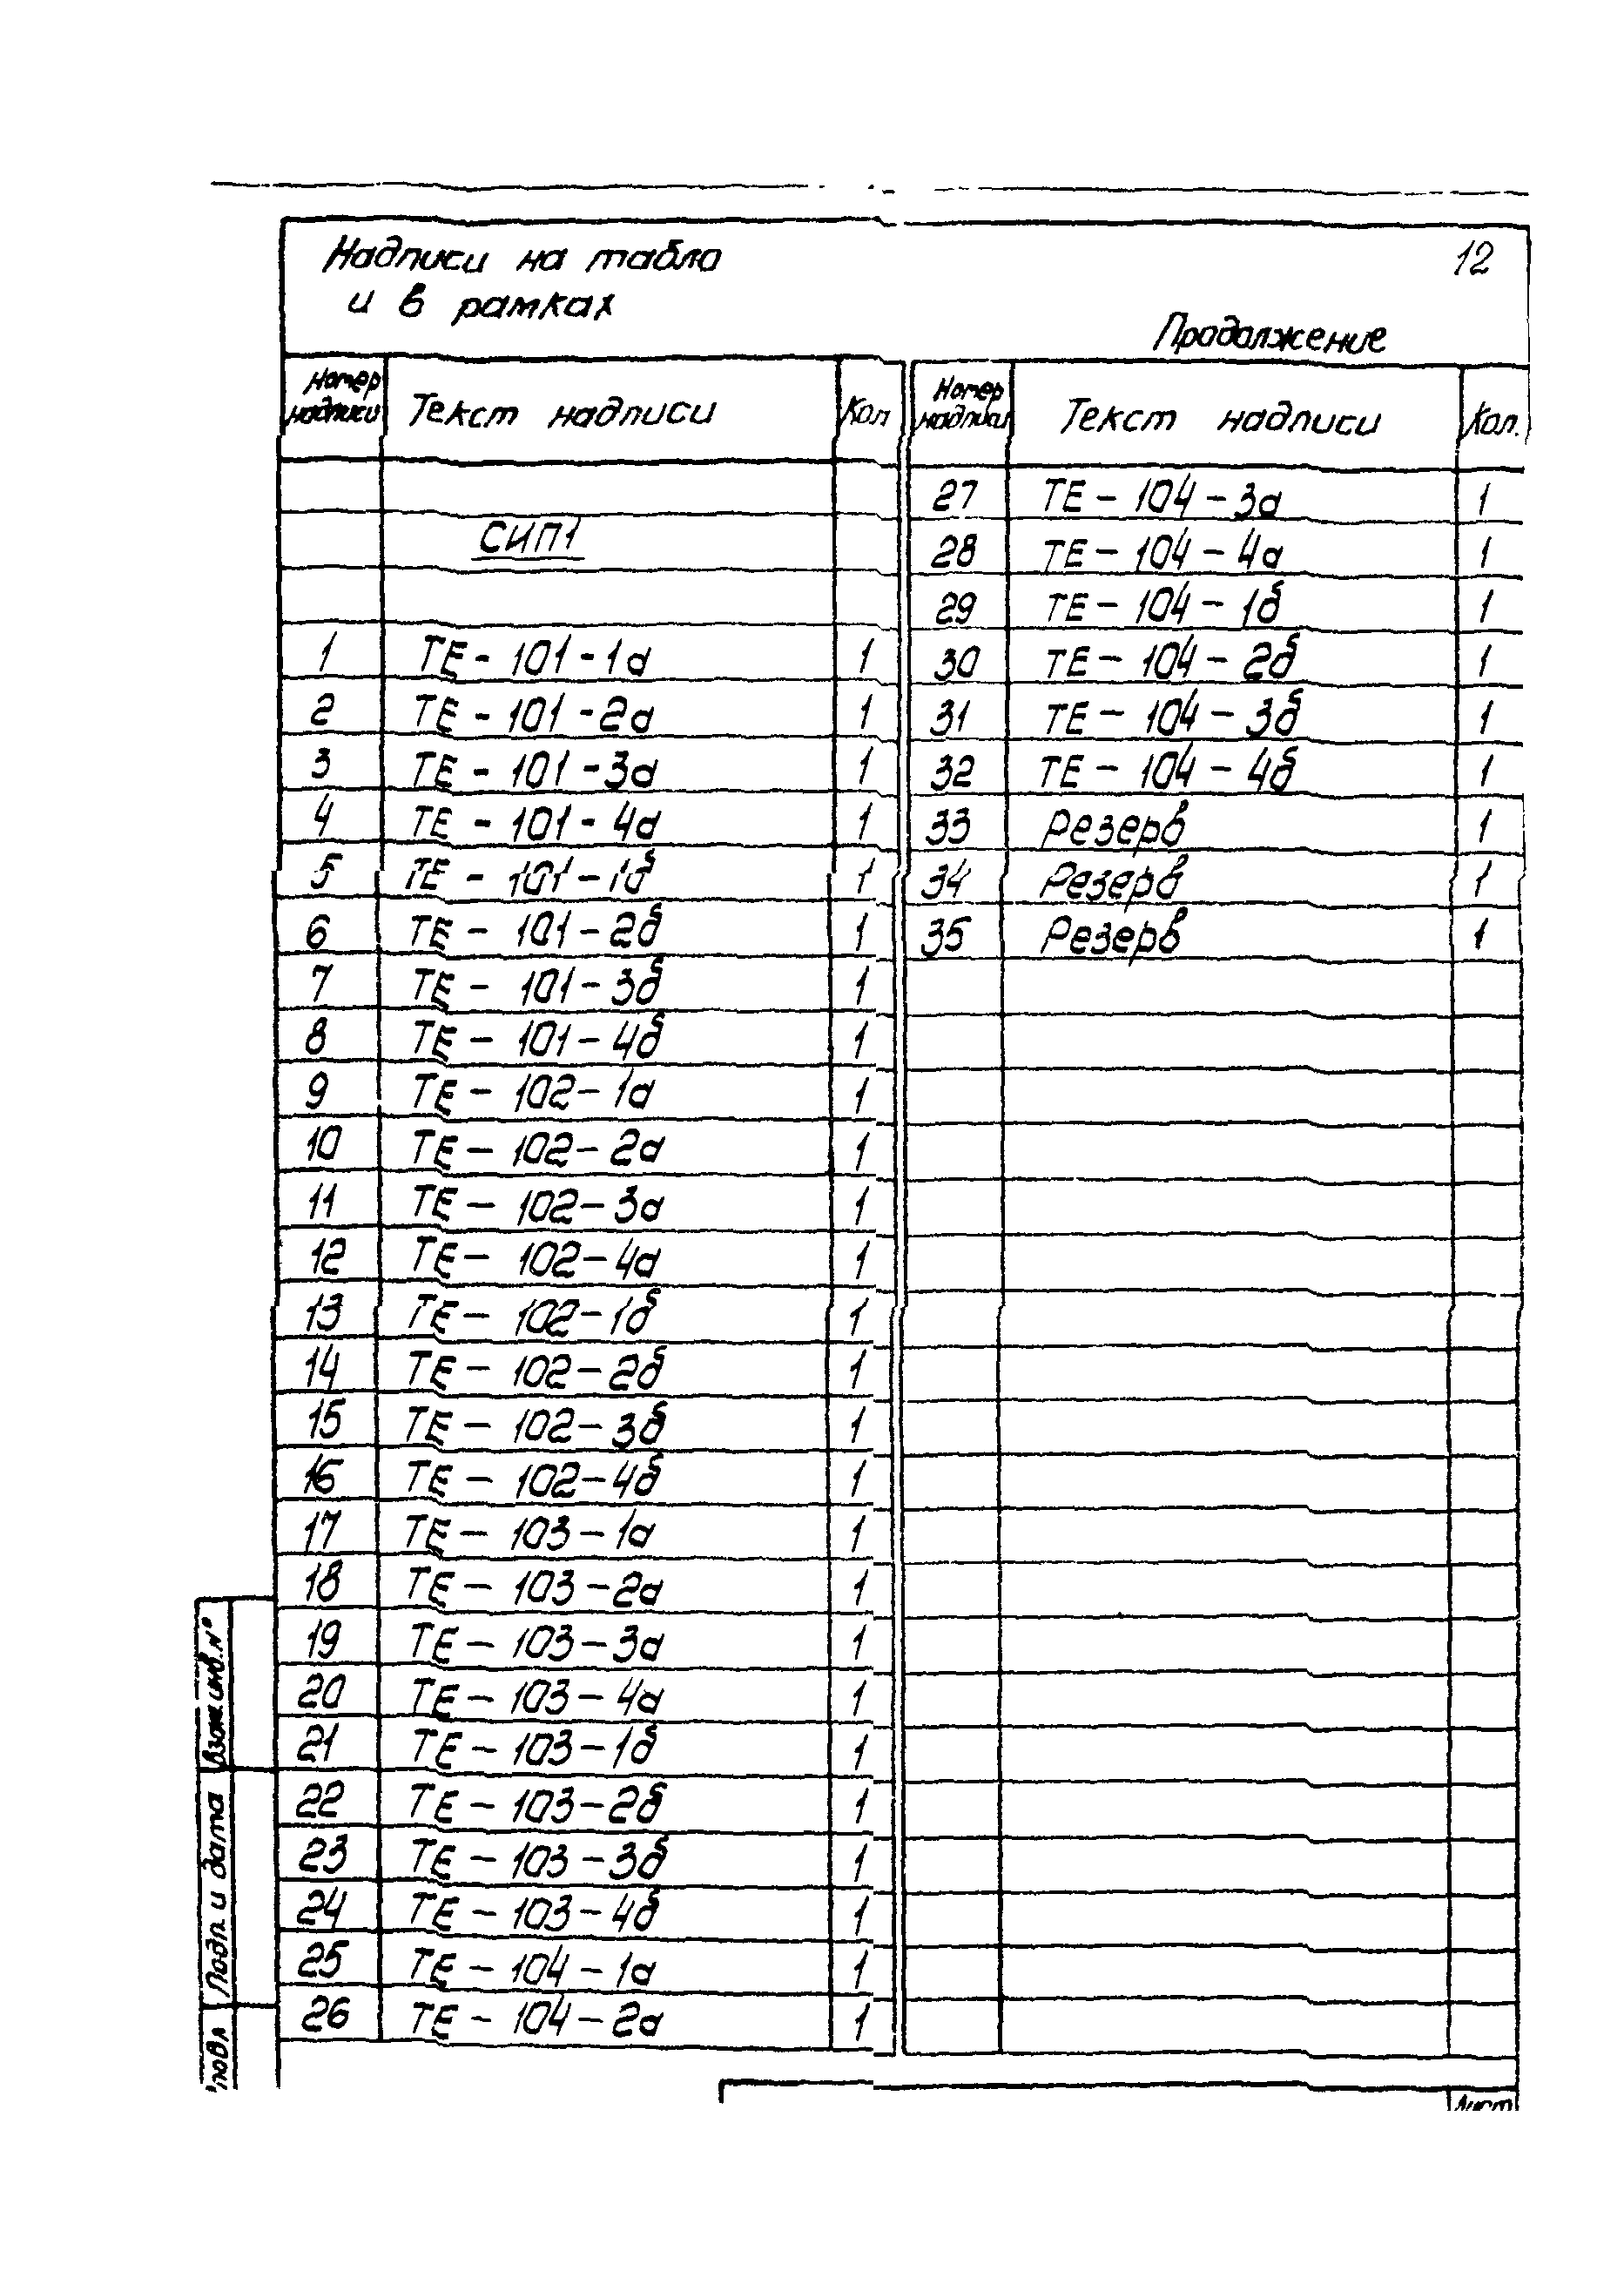 Надписи на табло 12
и в рамках
Продолжение
Номер надписи Текст надписи Кол
СИП1
1 ТЕ - 101 - 1а 1
2 ТЕ - 101 - 2а 1
3 ТЕ - 101 - 3а 1
4 ТЕ - 101 - 4а 1
5 ТЕ - 101 - 1б 1
6 ТЕ - 101 - 2б 1
7 ТЕ - 101 - 3б 1
8 ТЕ - 101 - 4б 1
9 ТЕ - 102 - 1а 1
10 ТЕ - 102 - 2а 1
11 ТЕ - 102 - 3а 1
12 ТЕ - 102 - 4а 1
13 ТЕ - 102 - 1б 1
14 ТЕ - 102 - 2б 1
15 ТЕ - 102 - 3б 1
16 ТЕ - 102 - 4б 1
17 ТЕ - 103 - 1а 1
18 ТЕ - 103 - 2а 1
19 ТЕ - 103 - 3а 1
20 ТЕ - 103 - 4а 1
21 ТЕ - 103 - 1б 1
22 ТЕ - 103 - 2б 1
23 ТЕ - 103 - 3б 1
24 ТЕ - 103 - 4б 1
25 ТЕ - 104 - 1а 1
26 ТЕ - 104 - 2а 1
Номер надписи Текст надписи Кол.
27 ТЕ - 104 - 3а 1
28 ТЕ - 104 - 4а 1
29 ТЕ - 104 - 1б 1
30 ТЕ - 104 - 2б 1
31 ТЕ - 104 - 3б 1
32 ТЕ - 104 - 4б 1
33 Резерв 1
34 Резерв 1
35 Резерв 1
Взам. инв. N°
Подп и дата
Лист